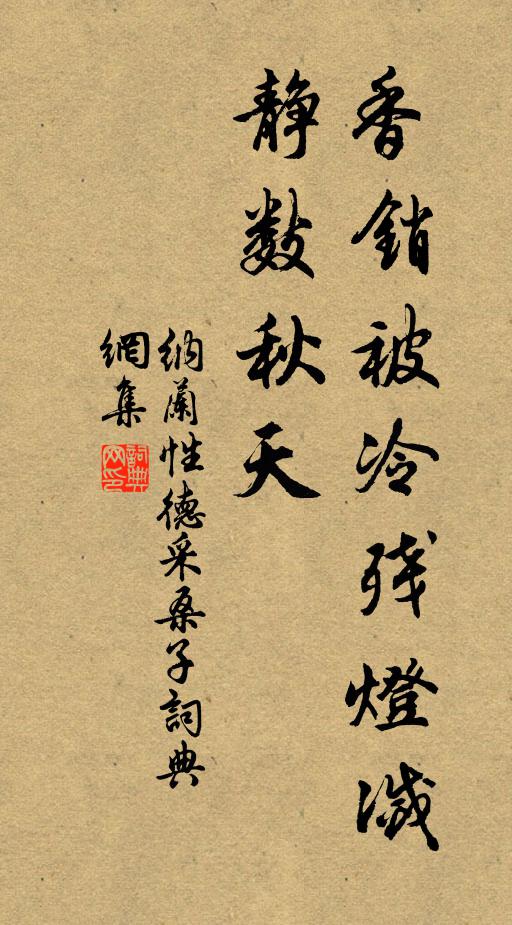 香銷被冷残燈滅
靜数秋天
納蘭性德采桑子詞典
網集
詞典
网印